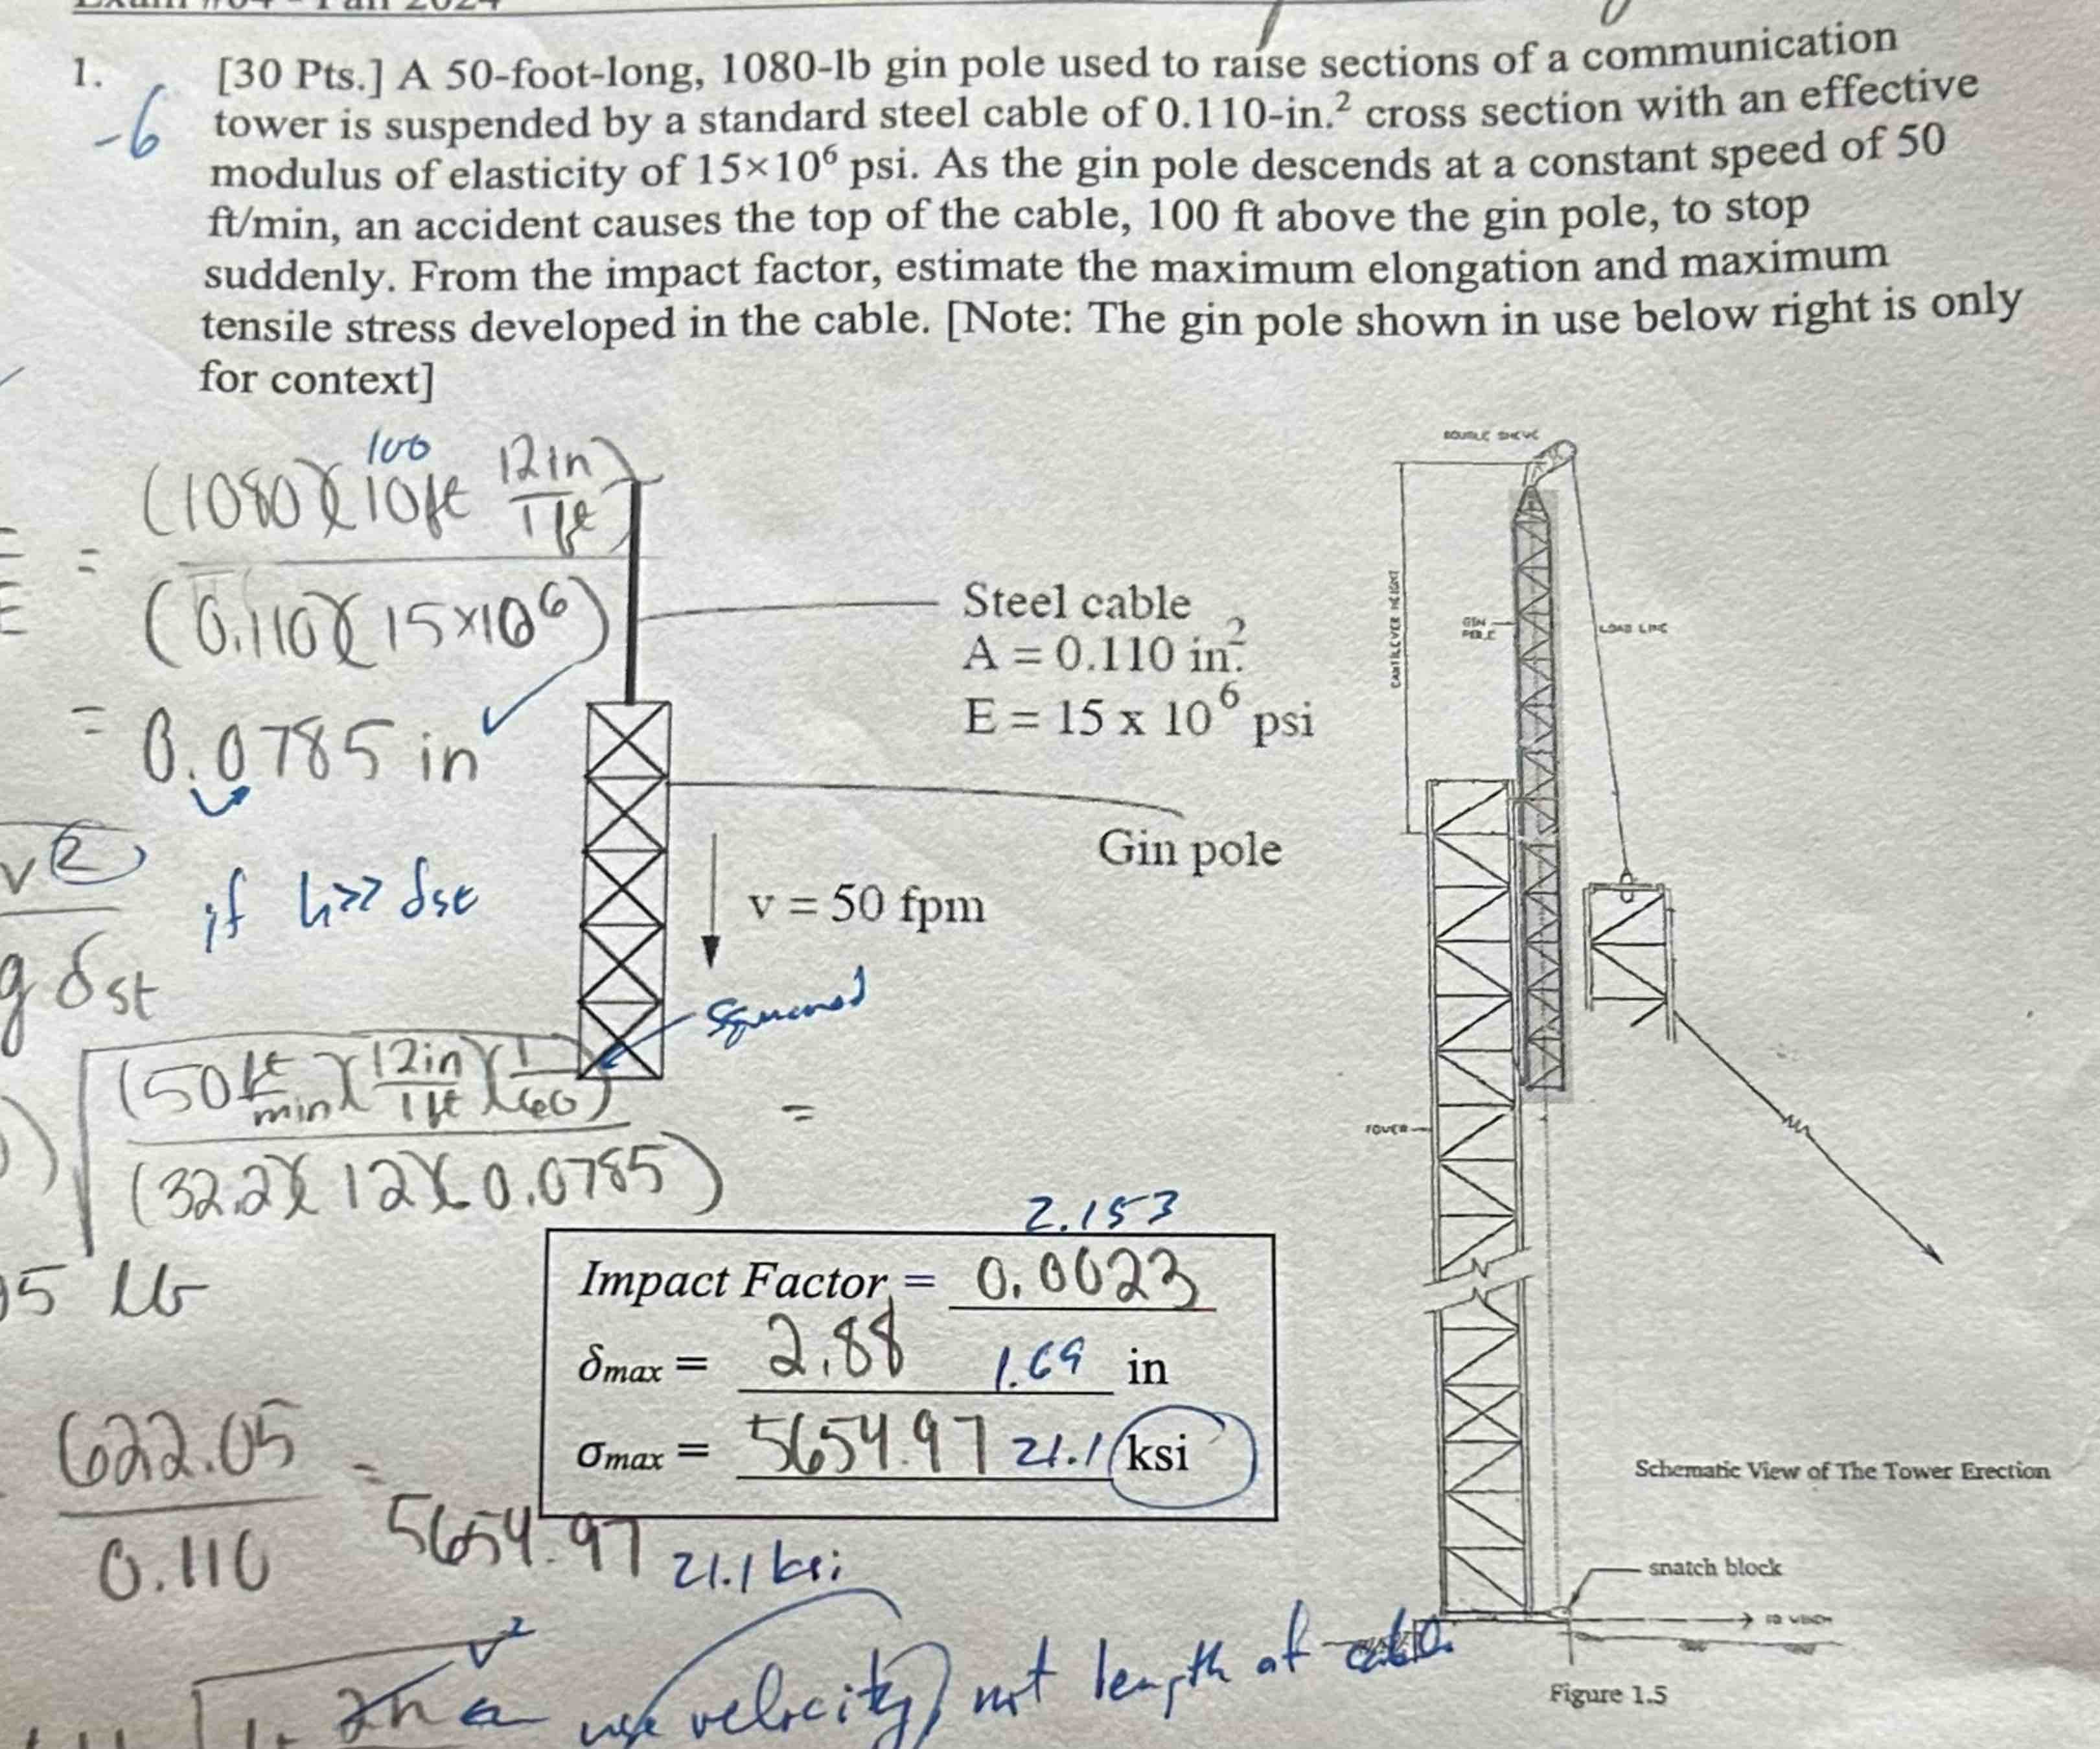 Exam #04 - Fall 2024
1.
-6
[30 Pts.] A 50-foot-long, 1080-lb gin pole used to raise sections of a communication
tower is suspended by a standard steel cable of 0.110-in.² cross section with an effective
modulus of elasticity of 15×10⁶ psi. As the gin pole descends at a constant speed of 50
ft/min, an accident causes the top of the cable, 100 ft above the gin pole, to stop
suddenly. From the impact factor, estimate the maximum elongation and maximum
tensile stress developed in the cable. [Note: The gin pole shown in use below right is only
for context]
100
= (1080)(10ft 12in/1ft)
(0.110)(15×10⁶)
= 0.0785 in
Steel cable
A = 0.110 in.²
E = 15 x 10⁶ psi
Gin pole
v = 50 fpm
v²
if h>>δst
gδst
squared
(50 ft/min)(12in/1ft)(1/60)
=
(32.2)(12)(0.0785)
5 lb
2.153
Impact Factor = 0.0023
δmax = 2.88 1.69 in
σmax = 5654.97 21.1 ksi
622.05
0.110
= 5654.97
21.1 ksi
v²
2h
use velocity, not length of cable
DOUBLE SHEVE
CANTILEVER HEIGHT
GIN
LOAD LINE
TOWER
Schematic View of The Tower Erection
snatch block
TO WINCH
Figure 1.5